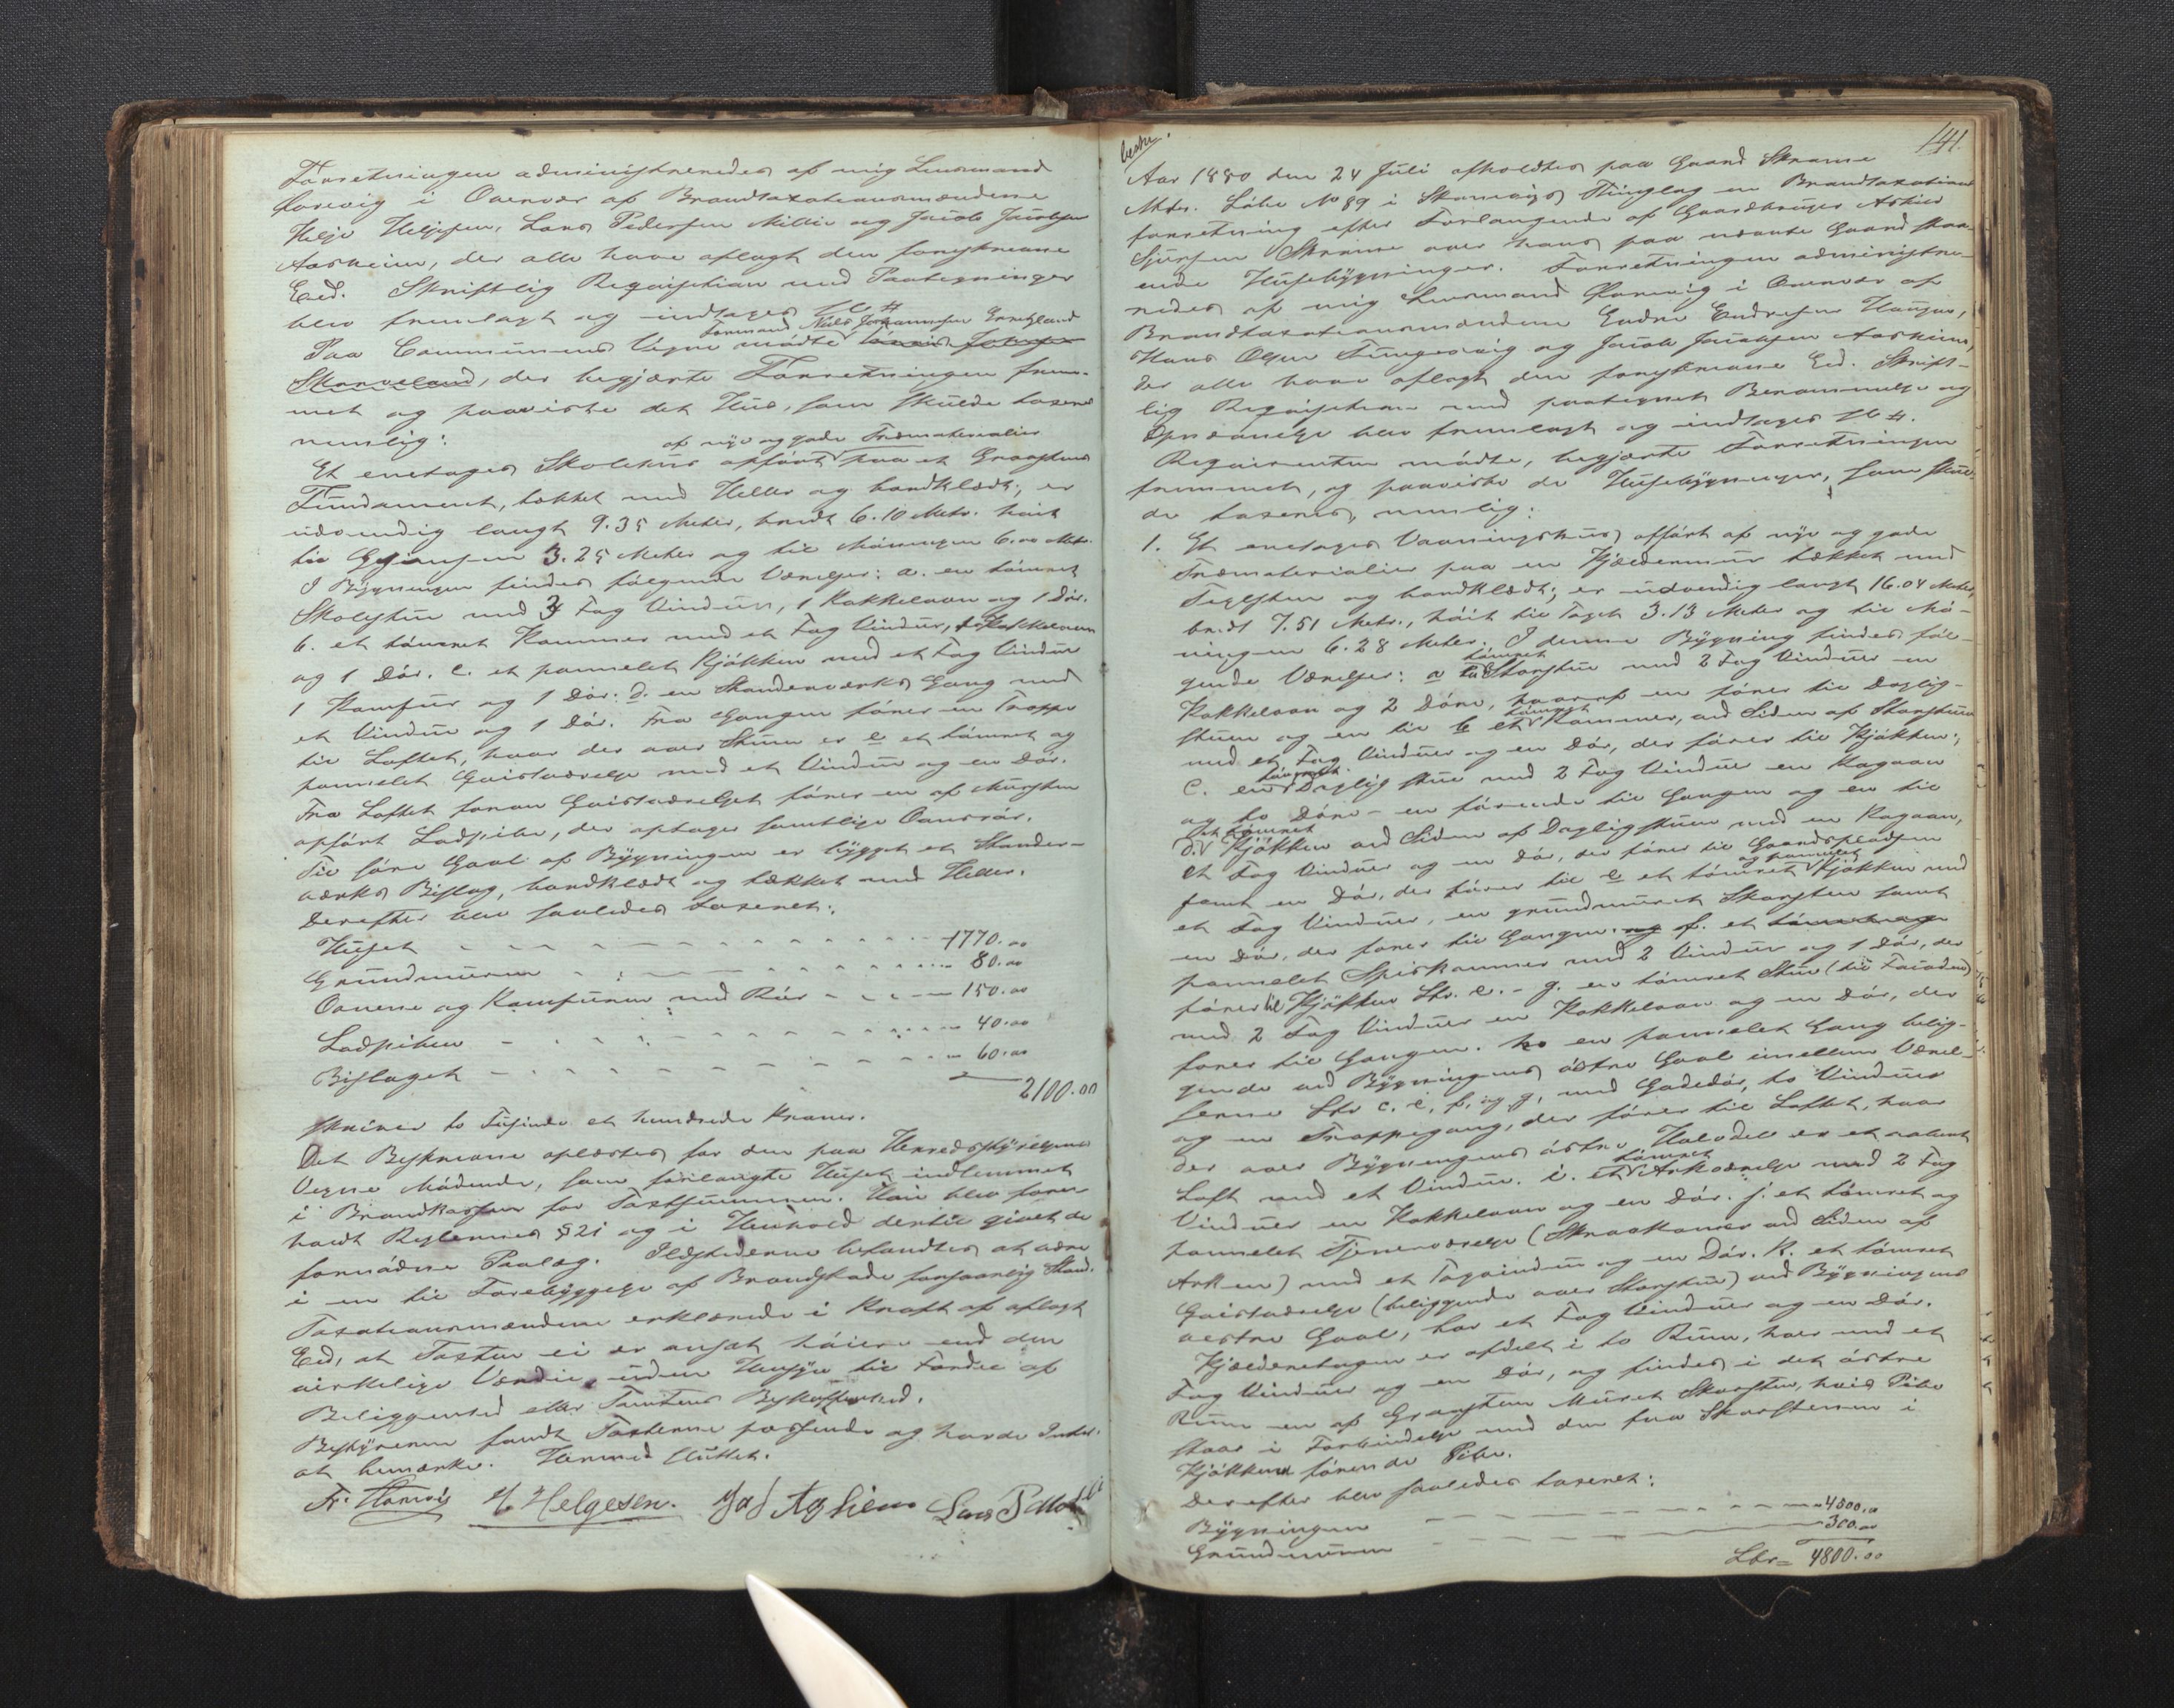 Forretningen administreredes af mig Lensmand
i Overvær af Brandtaxationsmændene
Helje Heljesen, Lars Pedersen Milde og Jacob Jacobsen
Aasheim, der alle have aflagt den foreskrevne
Eed. Skriftlig Reqvisition med Paategninger
blev fremlagt og indtages
Formand Niels Johannesen
Paa Communens Vegne mødte
Skarveland, der begjærte Forretningen frem-
met og paaviste det Huus, som skulde taxeres
nemlig:
af nye og gode Træmaterialier
Et enetages Skolehus opført paa et Graastens
Fundament, tækket med Heller og bordklædt; er
udvendig langt 9.35 Meter, bredt 6.10 Metr. høit
til Gesimsen 3.25 Meter og til Mønningen 6.00 Metr.
I Bygningen findes følgende Værelser: a. en tømret
Skolestue med 3 Fag Vinduer, 1 Kakkelovn og 1 Dør.
b. et tømret Kammer med et Fag Vinduer, 1 Kakkelovn
og 1 Dør. c. et pannelet Kjøkken med et Fag Vinduer
1 Komfur og 1 Dør: d. en Standerværks Gang med
et Vindue og 1 Dør. Fra Gangen fører en Trappe
til Loftet, hvor der over Stuen er e et tømret og
pannelet Qvistværelse med et Vindue og en Dør.
Fra Loftet foran Qvistværelset fører en af Mursten
opført Ladpibe, der optager samtlige Ovnsrør.
Til søre Gavl af Bygningen er bygget et Stander-
værks Bislag, bordklædt og tækket med Heller.
Derefter blev saaledes taxeret:
Huset 1770.00
Grundmuren 80.00
Ovnene og Komfuren med Rør 150.00
Ladpiben 40.00
Bislaget 60.00
2100.00
skriver to Tusinde et hundrede Kroner.
Det Beskrevne oplæstes for den paa Herredsstyrelsens
Vegne Mødende, som forlangte Huset indlemmet
i Brandkassen for Taxtsummen. Han blev fore-
holdt Reglernes § 21 og i Henhold dertil givet de
fornødne Paalæg. Ildstederne befandtes at være
i en til Forebyggelse af Brandskade forsvarlig Stand.
Taxationsmændene erklærede i Kraft af aflagt
Eed, at Taxten ei er ansat høiere end den
virkelige Værdie, uden Hensyn til Fordel af
Beliggenhed eller Tomtens Beskaffenhed.
Bestyreren fandt Taxterne passende og havde Intet
at bemærke. Hermed sluttet.
H Helgesen. Jac J Aasheim Lars P Milde
141.
Aar 1880 den 24 Juli afholdtes paa Gaard Skramme
Matr. Løbe No 89 i Skonevigs Thinglag en Brandtaxations
forretning efter Forlangende af Gaardbruger
Sjursen Skramme over hans paa nævnte Gaard staa-
ende Husebygninger. Forretningen administre-
redes af mig Lensmand i Overvær af
Brandtaxationsmændene Endre Endresen Haugen,
Hans Olsen Tungesvig og Jacob Jacobsen Aasheim,
der alle have aflagt den foreskrevne Eed. Skrift-
lig Reqvisition med paategnet Berammelse og
Opnævnelse blev fremlagt og indtages
Reqvirenten mødte, begjærte Forretningen
fremmet, og paaviste de Husebygninger, som skul-
de taxeres, nemlig:
1. Et enetages Vaaningshus, opført af nye og gode
Træmaterialier paa en Kjældermur tækket med
Teglsten og bordklædt; er udvendig langt 16.04 Meter,
bredt 7.51 Metr., høit til Taget 3.13 Meter og til Mø-
ningen 6.28 Meter. I denne Bygning findes føl-
tømret
gende Værelser: a en Storstue med 2 Fag Vinduer en
Kakkelovn og 2 Døre, hvoraf en fører til Daglig-
tømret
stuen og en til b et Kammer, ved Siden af Storstuen
med et Fag Vinduer og en Dør, der fører til Kjøkken;
tømret
c. en Dagligstue med 2 Fag Vinduer en Kogovn
og to Døre - en førende til Gangen og en til
et tømret
d. Kjøkken ved Siden af Dagligstuen med en Kogovn,
et Fag Vinduer og en Dør, der fører til Gaardspladsen
og pannelet
samt en Dør, der fører til e et tømret Kjøkken med
et Fag Vinduer, en grundmuret Skorsten samt
en Dør, der fører til Gangen. og f. et tømret og
pannelet Spiskammer med 2 Vinduer og 1 Dør, der
fører til Kjøkken Ltr. e. - g. en tømret Stue (til Facaden)
med 2 Fag Vinduer en Kakkelovn og en Dør, der
fører til Gangen. h en pannelet Gang belig-
gende ved Bygningens østre Gavl imellem Værel-
serne Ltr c. e, f. og g, med Gadedør, to Vinduer
og en Trappegang, der fører til Loftet, hvor
der over Bygningens østre Halvdel er et aabent
tømret
Loft med et Vindue. i. et Arkværelse med 2 Fag
Vinduer en Kakkelovn og en Dør. j. et tømret og
pannelet Tjenerværelse (Skraakammer ved Siden af
Arken) med et Tagvindue og en Dør. k. et tømret
Qvistværelse (beliggende over Storstue) ved Bygningens
vestre Gavl, har et Fag Vinduer og en Dør.
Kjælderetagen er afdelt i to Rum, hver med et
Fag Vinduer og en Dør, og findes i det østre
Rum en af Graasten Muret Skorsten, hvis Pibe
staar i Forbindelse med den fra Skorstenen i
Kjøkkenet førende Pibe.
Derefter blev saaledes taxeret:
Bygningen 4500.00
Grundmuren 300.00
Lbr= 4800.00